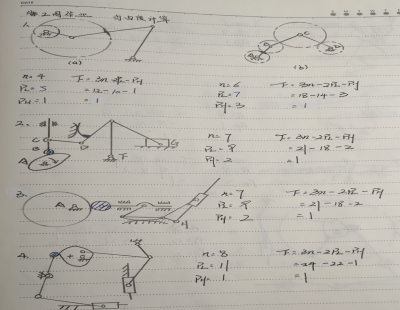 自由度计算
1.
(a)
(b)
n=4 F=3n-2PL-PH
PL=5 =12-10-1
PH=1 =1
n=6 F=3n-2PL-PH
PL=7 =18-14-3
PH=3 =1
2.
n=7 F=3n-2PL-PH
PL=9 =21-18-2
PH=2 =1
3.
n=7 F=3n-2PL-PH
PL=9 =21-18-2
PH=2 =1
4.
n=8 F=3n-2PL-PH
PL=11 =24-22-1
PH=1 =1